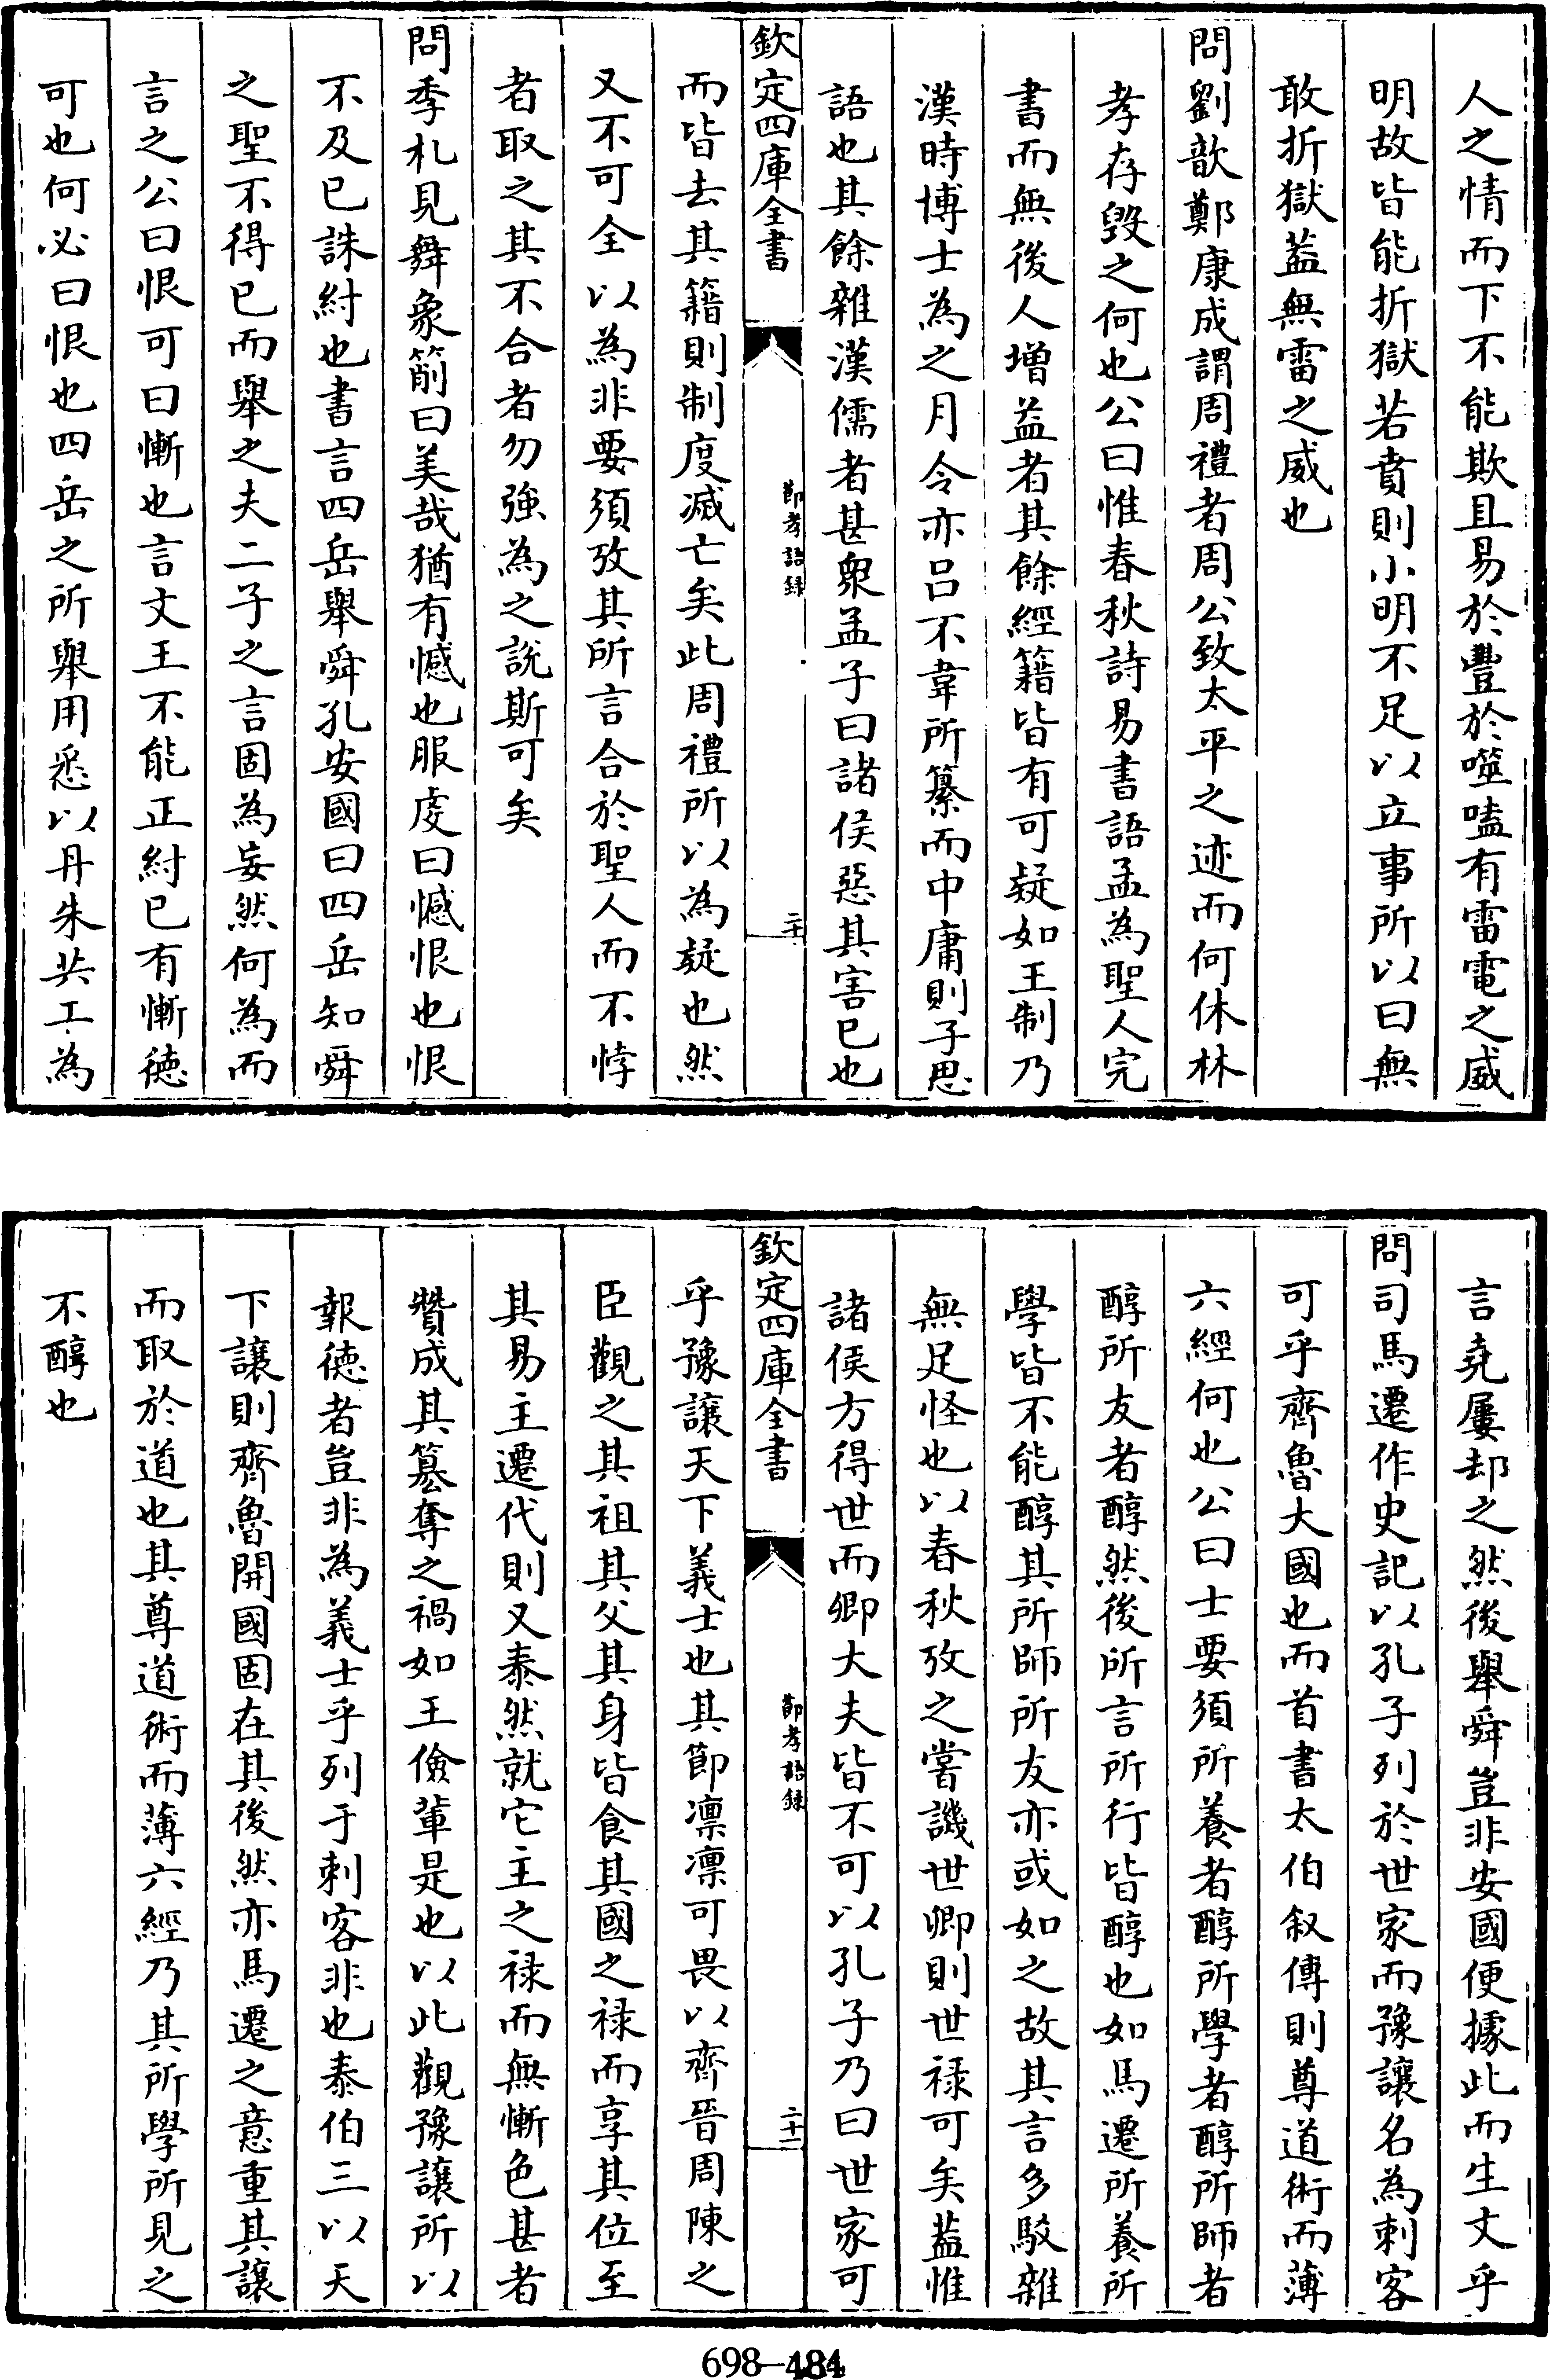 人之情而下不能欺且易於豐於噬嗑有雷電之威
明故皆能折獄若賁則小明不足以立事所以曰無
敢折獄蓋無雷之威也
問劉歆鄭康成謂周禮者周公致太平之迹而何休林
孝存毀之何也公曰惟春秋詩易書語孟為聖人完
書而無後人増益者其餘經籍皆有可疑如王制乃
漢時博士為之月令亦呂不韋所纂而中庸則子思
語也其餘雜漢儒者甚衆孟子曰諸侯惡其害已也
欽定四庫全書
節孝語錄
二十
而皆去其籍則制度滅亡矣此周禮所以為疑也然
又不可全以為非要須攷其所言合於聖人而不悖
者取之其不合者勿強為之說斯可矣
問季札見舞象箾曰美哉猶有憾也服虔曰憾恨也恨
不及已誅紂也書言四岳舉舜孔安國曰四岳知舜
之聖不得已而舉之夫二子之言固為妄然何為而
言之公曰恨可曰慚也言文王不能正紂已有慚徳
可也何必曰恨也四岳之所舉用悉以丹朱共工為
言堯屢却之然後舉舜豈非安國便據此而生文乎
問司馬遷作史記以孔子列於世家而豫讓名為刺客
可乎齊魯大國也而首書太伯叙傳則尊道術而薄
六經何也公曰士要須所養者醇所學者醇所師者
醇所友者醇然後所言所行皆醇也如馬遷所養所
學皆不能醇其所師所友亦或如之故其言多駁雜
無足怪也以春秋攷之嘗譏世卿則世禄可矣蓋惟
諸侯方得世而卿大夫皆不可以孔子乃曰世家可
欽定四庫全書
節孝語錄
二十一
乎豫讓天下義士也其節凛凛可畏以齊晉周陳之
臣觀之其祖其父其身皆食其國之禄而享其位至
其易主遷代則又泰然就它主之禄而無慚色甚者
贊成其簒奪之禍如王儉輩是也以此觀豫讓所以
報徳者豈非為義士乎列于刺客非也泰伯三以天
下讓則齊魯開國固在其後然亦馬遷之意重其讓
而取於道也其尊道術而薄六經乃其所學所見之
不醇也
698-484